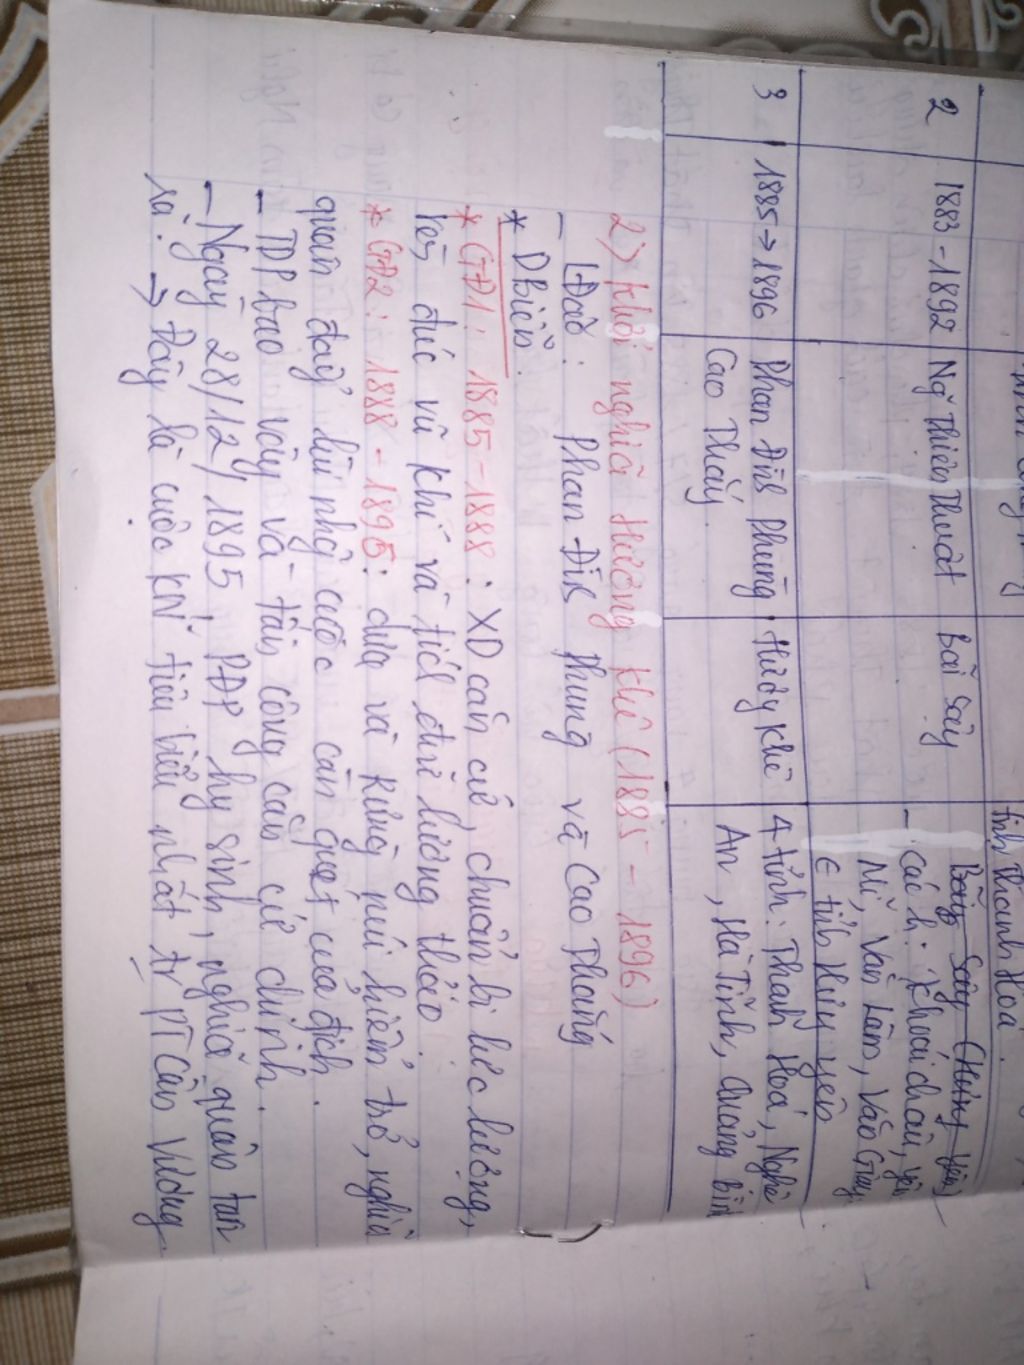 tỉnh Thanh Hoá.
2 1883 - 1892 Ng~ Thiện Thuật Bãi Sậy Bãi Sậy (Hưng Yên)
- Các h: Khoái châu, yên
Mĩ, Văn Lâm, Văn Giang
∈ tỉnh Hưng yên
3 1885 → 1896 Phan Đìh Phùng Hương Khê 4 tỉnh: Thanh Hoá, Nghệ
Cao Thắng. An, Hà Tĩnh, Quảng Bình
2) Khởi nghĩa Hương Khê (1885 - 1896)
- LĐạo: Phan Đìh Phùng và Cao Thắng
* Dbiến.
* GĐ1: 1885-1888: XD căn cứ, chuẩn bị lực lượng,
rèn đúc vũ khí và tích trữ lương thảo.
* GĐ2: 1888 - 1895: dựa và rừng núi hiểm trở, nghĩa
quân đẩy lùi nhg cuộc càn quét của địch.
- TDP bao vây và tấn công căn cứ chính.
- Ngày 28/12/1895, PĐP hy sinh, nghĩa quân tan
rã. → Đây là cuộc KN tiêu biểu nhất tr PT Cần Vương